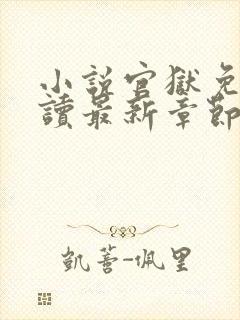 小說官獄免
讀最新章節
凱蕾-佩里